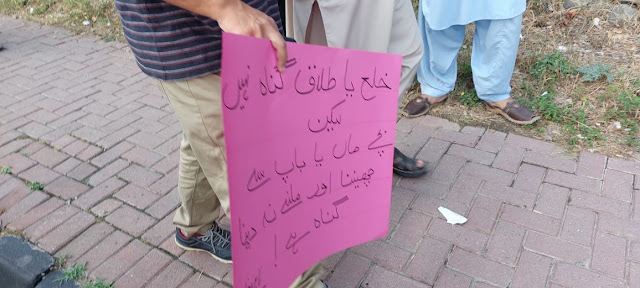 خلع یا طلاق گناہ نہیں
لیکن
بچے ماں یا باپ سے
چھیننا اور ملنے نہ دینا
گناہ ہے !